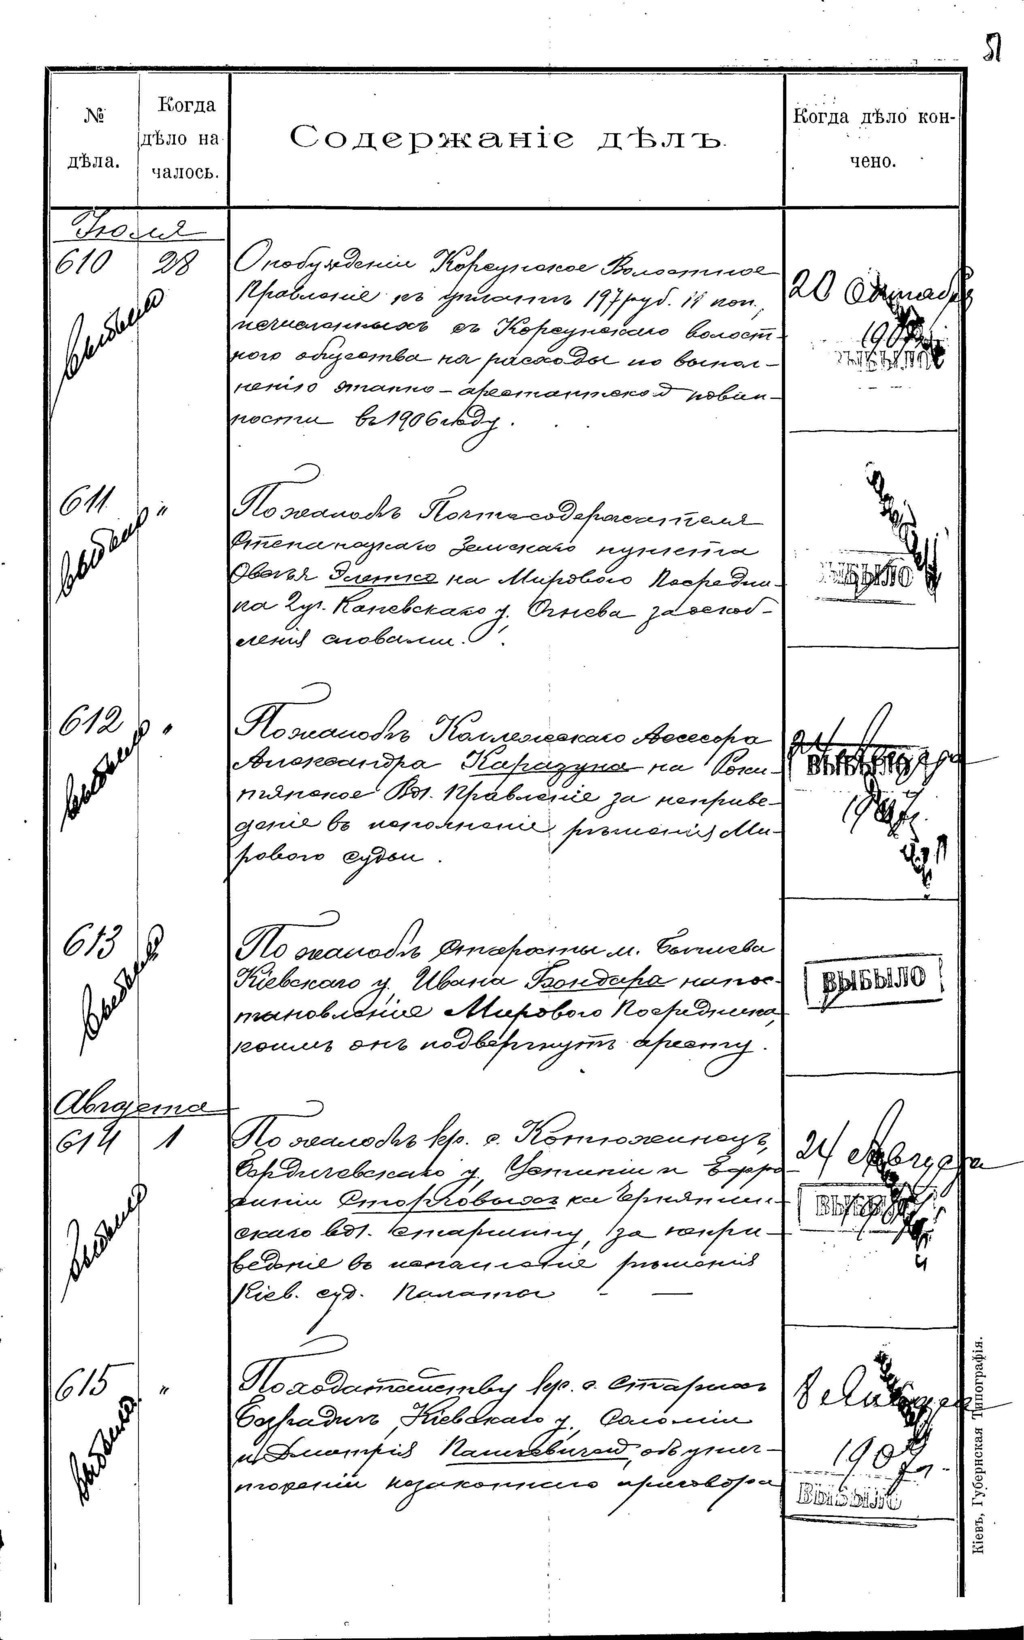 51
№ дѣла.
Когда дѣло началось.
Содержаніе дѣлъ.
Когда дѣло кончено.
Іюля
610 28
выбыло
О побужденіи Корсунское Волостное
Правленіе къ уплатѣ 197 руб. 11 коп.,
исчисленныхъ съ Корсунскаго волост-
ного общества на расходы по выпол-
ненію этапно-арестантской повин-
ности въ 1906 году.
20 Октября
1907
ВЫБЫЛО
611 "
выбыло
По жалобѣ Почтосодержателя
Земскаго пункта
на Мирового Посредни-
ка 2 уч. Каневскаго у. Огнева за оскор-
бленія словами.
ВЫБЫЛО
612 "
выбыло
По жалобѣ Коллежскаго Ассесора
Александра Каразуна на Роки-
тянское Вол. Правленіе за неприве-
деніе въ исполненіе рѣшенія Ми-
рового судьи.
24 Августа
ВЫБЫЛО
1907 г.
613 "
выбыло
По жалобѣ Старосты м. Бышева
Кіевскаго у. Ивана Бондаря на пос-
тановленіе Мирового Посредника,
коимъ онъ подвергнутъ аресту.
ВЫБЫЛО
Августа
614 1
выбыло
По жалобѣ кр. с. Котюжинецъ,
Бердичевскаго у. Устиніи и Евфро
синіи Сторговыхъ на Чернянин-
скаго вол. старшину, за непри-
веденіе въ исполненіе рѣшенія
Кіев. суд. Палаты
24 Августа
ВЫБЫЛО
1907
615 "
выбыло
По ходатайству кр. с. Старыхъ
Безрадичъ, Кіевскаго у. Саломіи
и Дмитрія Пашкевичей, объ унич-
тоженіи незаконнаго приговора
8 Января
1907 г.
ВЫБЫЛО
Кіевъ, Губернская Типографія.